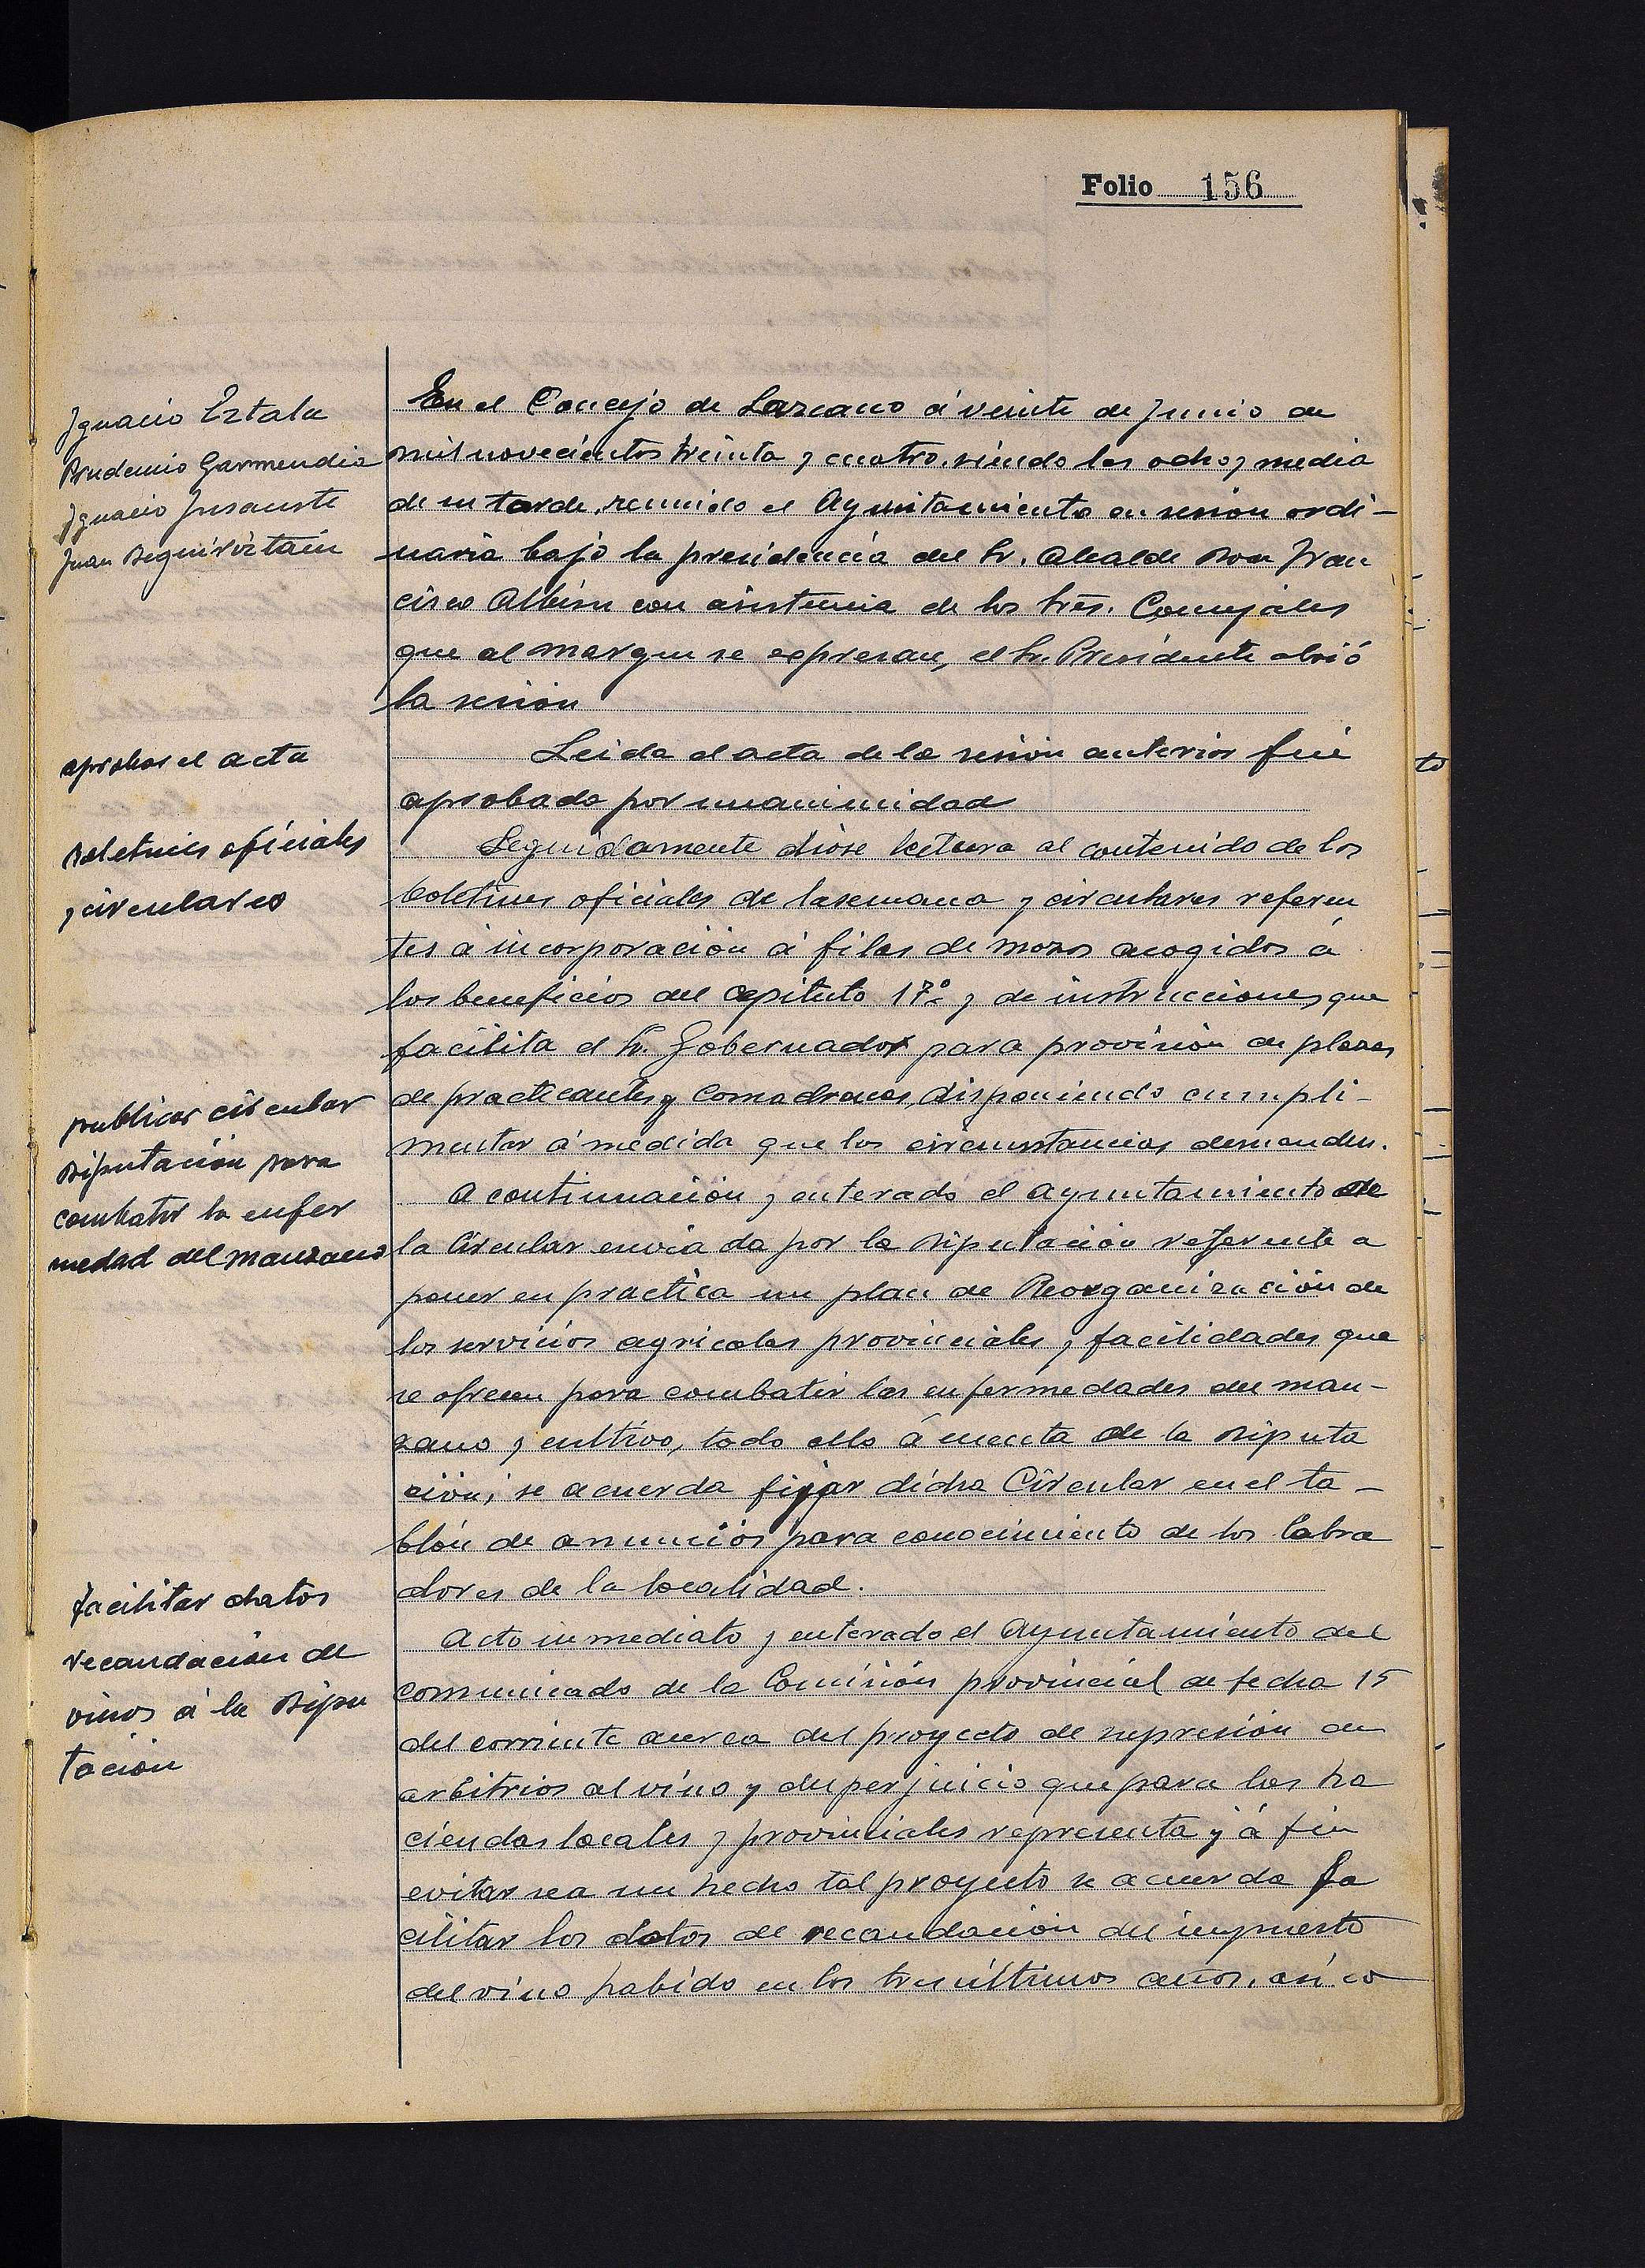 Folio 156
Ignacio Eztala
Prudencio Garmendia
Ignacio Insausti
Juan Beguiristain
En el Concejo de Lazcano á veinte de Junio de
mil novecientos treinta y cuatro, siendo las ocho y media
de su tarde, reunido el Ayuntamiento en sesión ordi-
naria bajo la presidencia del Sr. Alcalde Don Fran
cisco Albisu con asistencia de los Sres. Concejales
que al margen se expresan, el Sr. Presidente abrió
la sesión
aprobar el acta
Leida el acta de la sesión anterior fué
aprobada por unanimidad
Boletines oficiales
y circulares
Seguidamente dióse lectura al contenido de los
boletines oficiales de la semana y circulares referen
tes á incorporación á filas de mozos acogidos á
los beneficios del capitulo 17º y de instrucciones que
facilita el Sr. Gobernador para provisión de plazas
de practicantes y Comadronas, disponiendo cumpli-
mentar á medida que las circunstancias demanden.
publicar circular
Diputación para
combatir la enfer
medad del manzano
A continuación y enterado el Ayuntamiento de
la Circular enviada por la Diputación referente a
poner en practica un plan de Reorganización de
los servicios agricolas provinciales y facilidades que
se ofrecen para combatir las enfermedades del man-
zano y cultivo, todo ello á cuenta de la Diputa
ción, se acuerda fijar dicha Circular en el ta-
blón de anuncios para conocimiento de los labra
dores de la localidad.
facilitar datos
recaudación de
vinos á la Dipu
tación
Acto inmediato y enterado el Ayuntamiento del
comunicado de la Comisión provincial de fecha 15
del corriente acerca del proyecto de supresión de
arbitrios al vino y del perjuicio que para las ha
ciendas locales y provinciales representa y á fin
evitar sea un hecho tal proyecto se acuerda fa
cilitar los datos de recaudación del impuesto
del vino habido en los tres últimos años, así co